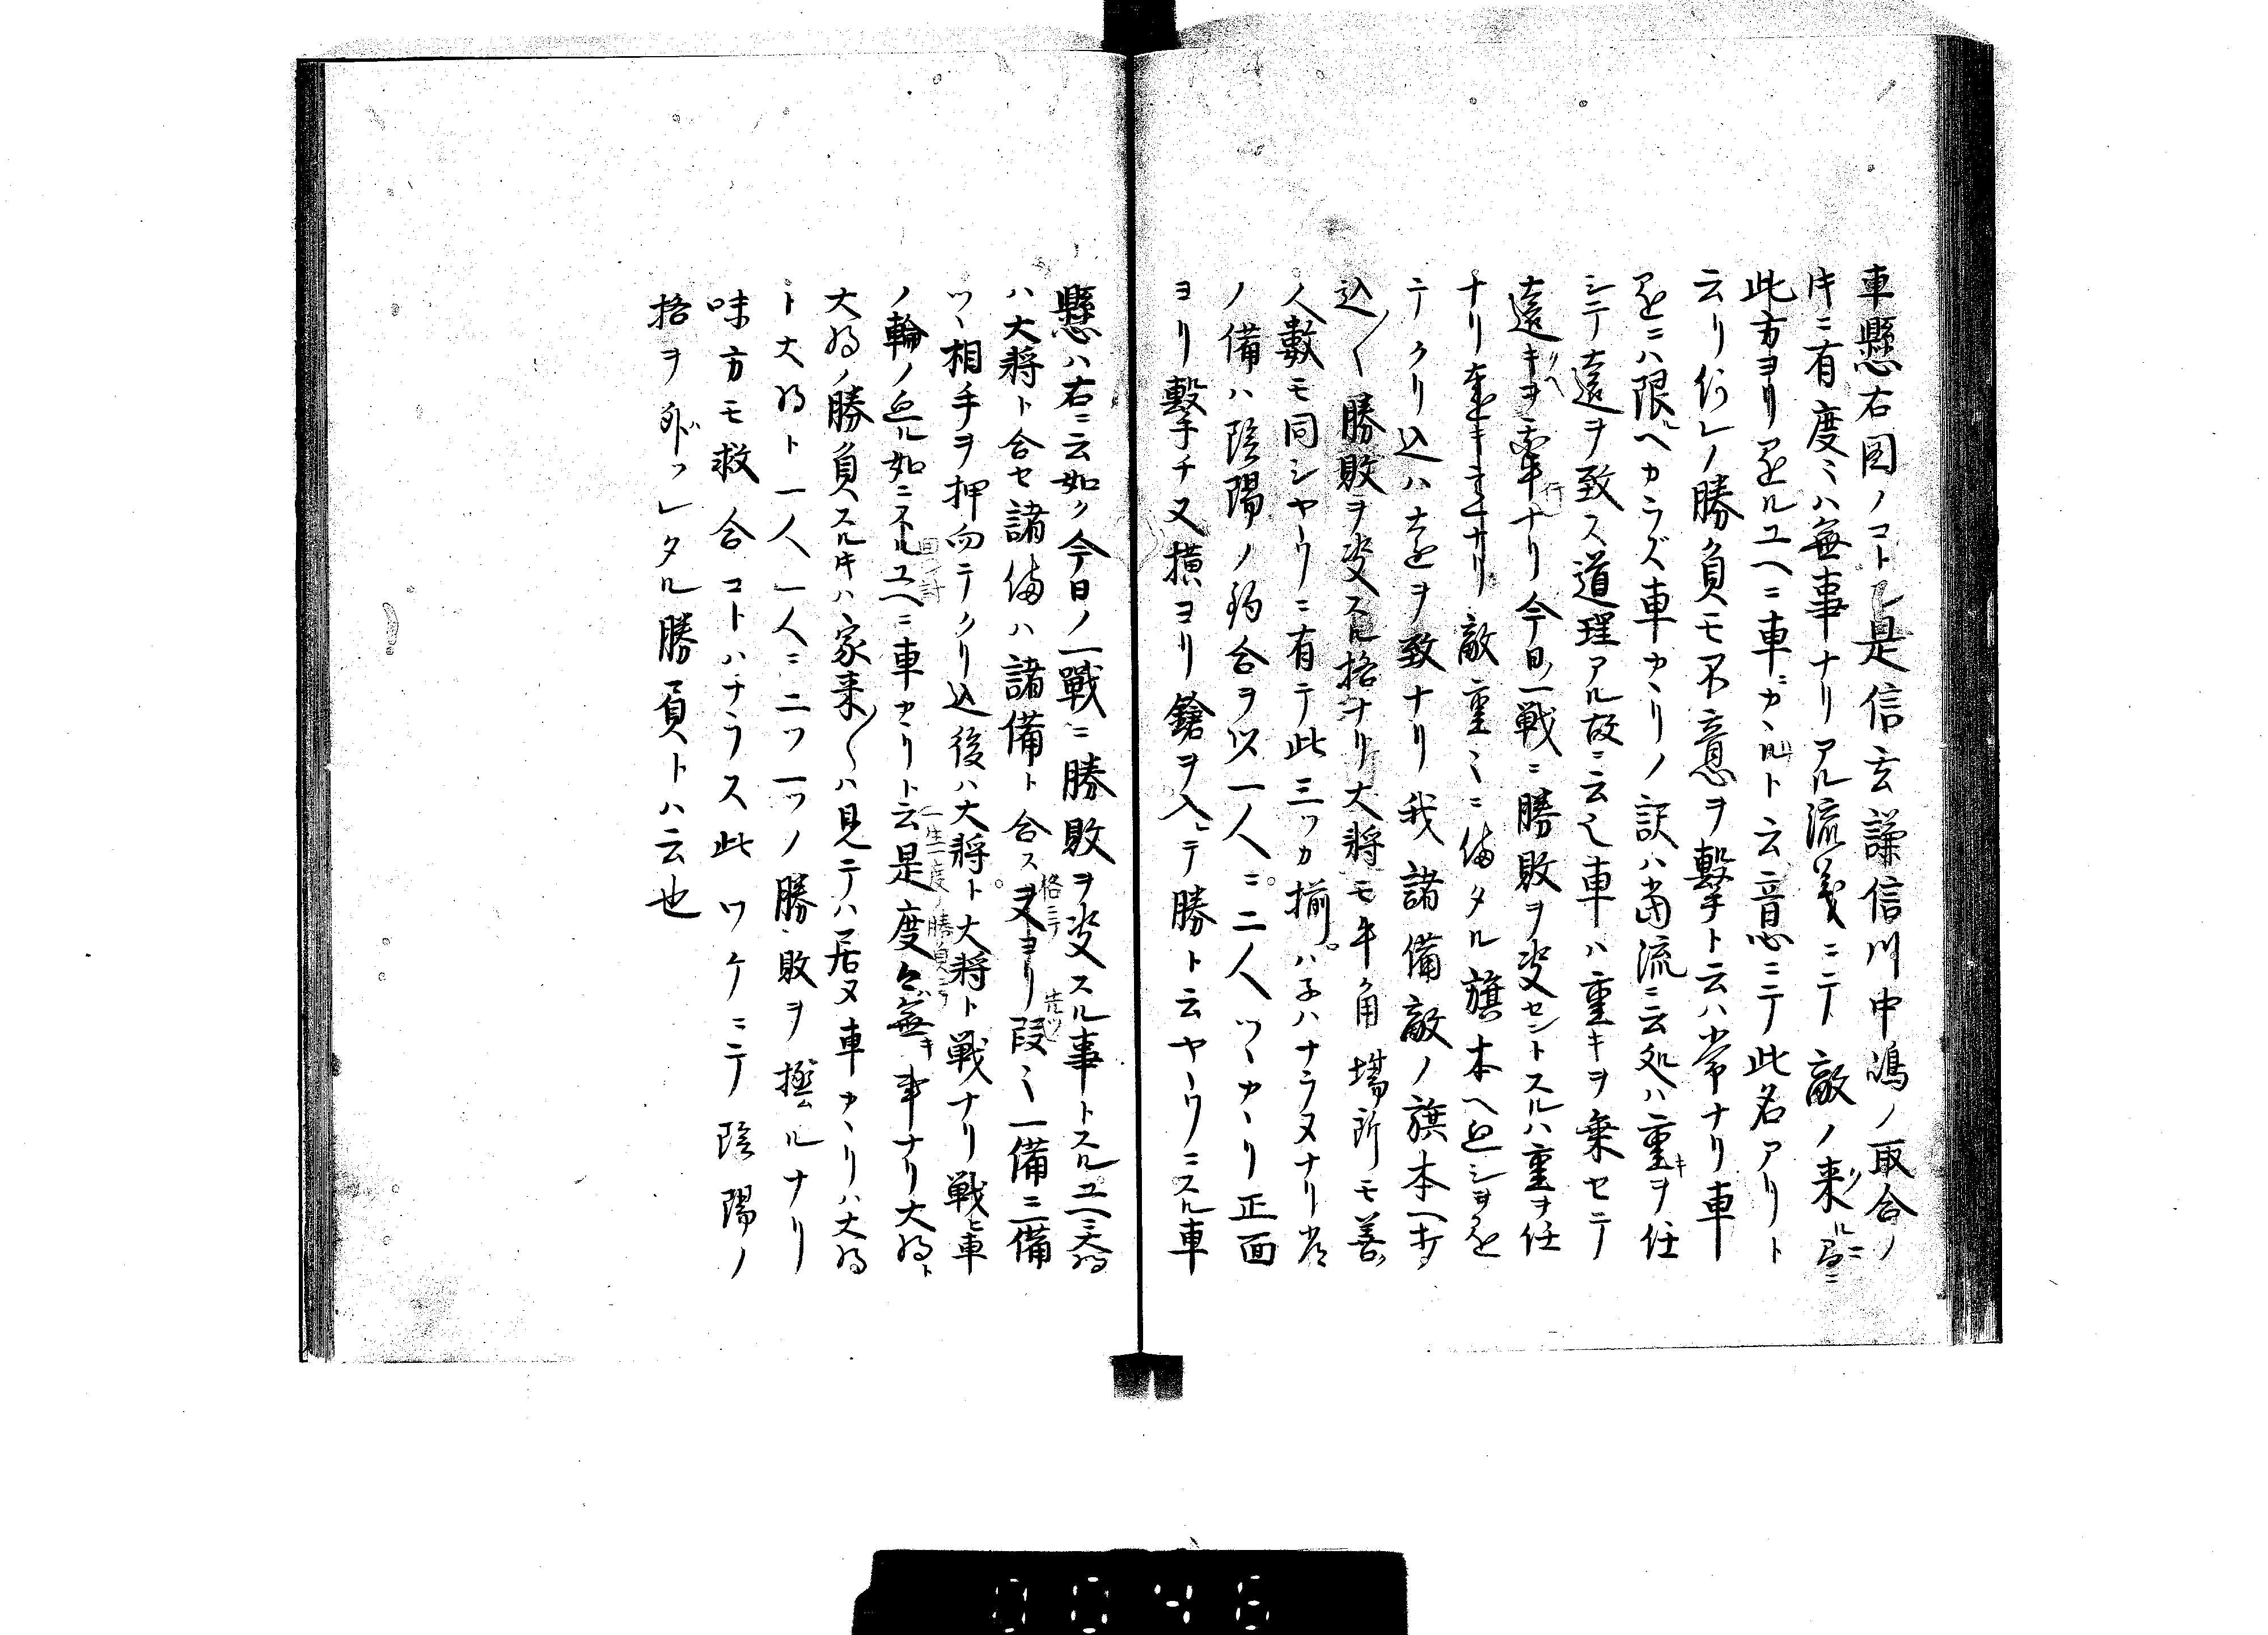 車懸右図ノコトシ是信玄謙信川中嶋ノ取合ノ
キニ有度々ハ無事ナリアル流義ニテ敵ノ来ルニ
此方ヨリルユヘニ車カヽルト云意ニテ此名アリト
云リノ勝負モ不意ヲ撃ト云ハ常ナリ車
ニハ限ヘカラズ車カヽリノ訳ハ当流ニ云処ハ重キヲ任
シテ遠ヲ致ス道理アル故ニ云也車ハ重キヲ乗セテ
遠キヲ行ナリ今日ノ一戦ニ勝敗ヲ決セントスルハ重ヲ任
ナリ敵重々ニ備タル旗本ヘ
テクリ込ハ遠ヲ致ナリ我諸備敵ノ旗本ヘ
込〳〵勝敗ヲ決スル格ナリ大将モ牛角場所モ善
人数モ同シヤウニ有テ此三ツカ揃ハ子ハナラヌナリ常
ノ備ハ陰陽ノ釣合ヲ以一人ニ二人ツヽカヽリ正面
ヨリ撃チ又横ヨリ鎗ヲ入レテ勝ト云ヤウニスル車
懸ハ右ニ云如ク今日ノ一戦ニ勝敗ヲ決スル事トスルユヘニ大将
ハ大将ト合セ諸備ハ諸備ト合ス格ニテ先ツヨリ段々一備二備
ツヽ相手ヲ押向テクリ込後ハ大将ト大将ト戦ナリ戦ヒ車
ノ輪ノ廻ル如ニネルユヘニ車カヽリト云是度々無キ事ナリ大将ト
大将ノ勝負スルキハ家来〳〵ハ見テハ居ヌ車カヽリハ大将
ト大将ト一人一人ニ二ツ一ツノ勝敗ヲ極ムルナリ
味方モ救合コトハナラス此ツケニテ陰陽ノ
格ヲ外ツレタル勝負トハ云也